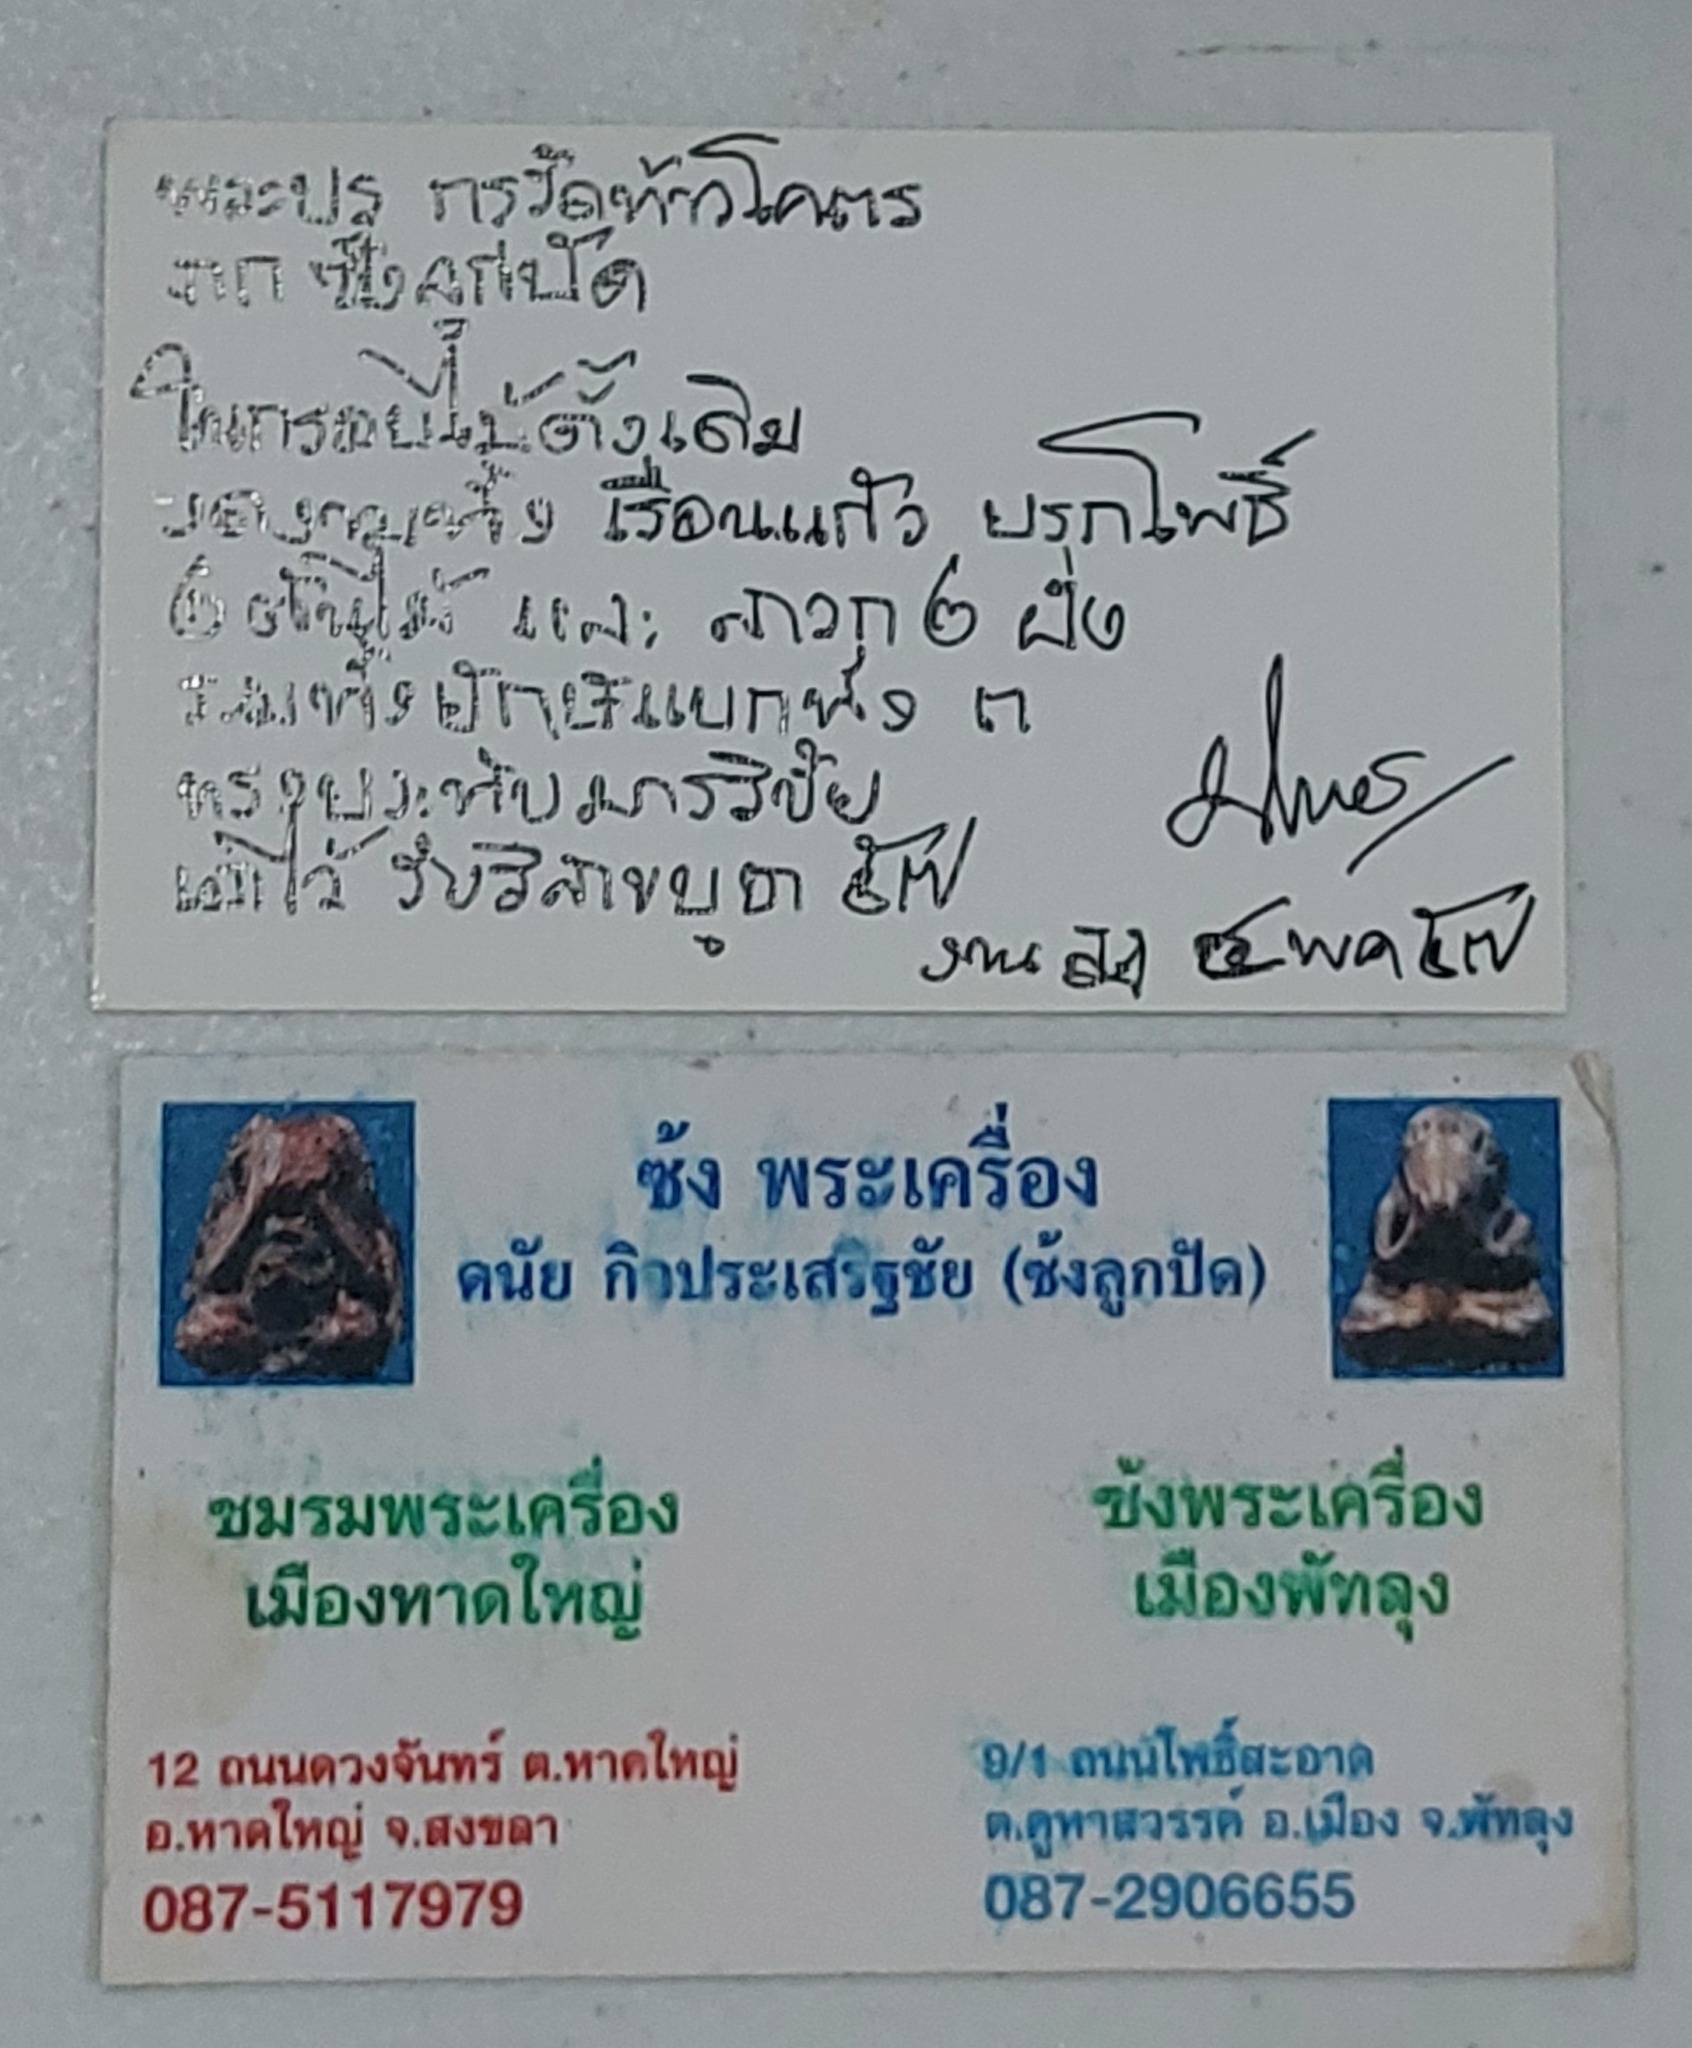 พระบูร กรุวัดท้าวโคตร
จาก ซ้งลูกปัด
ในกรอบไม้ดั้งเดิม
เรือนแก้ว
และ สาวก ๒ ฝั่ง
รวมทั้งยักษ์แบกทั้ง ๓
ประทับมารวิชัย
ได้ไว้ วิสาขบูชา ๕๗
งาน ๕๗
ซ้ง พระเครื่อง
ดนัย กิวประเสริฐชัย (ซ้งลูกปัด)
ชมรมพระเครื่อง
เมืองหาดใหญ่
ซ้งพระเครื่อง
เมืองพัทลุง
12 ถนนดวงจันทร์ ต.หาดใหญ่
อ.หาดใหญ่ จ.สงขลา
087-5117979
9/1 ถนนโพธิ์สะอาด
ต.คูหาสวรรค์ อ.เมือง จ.พัทลุง
087-2906655